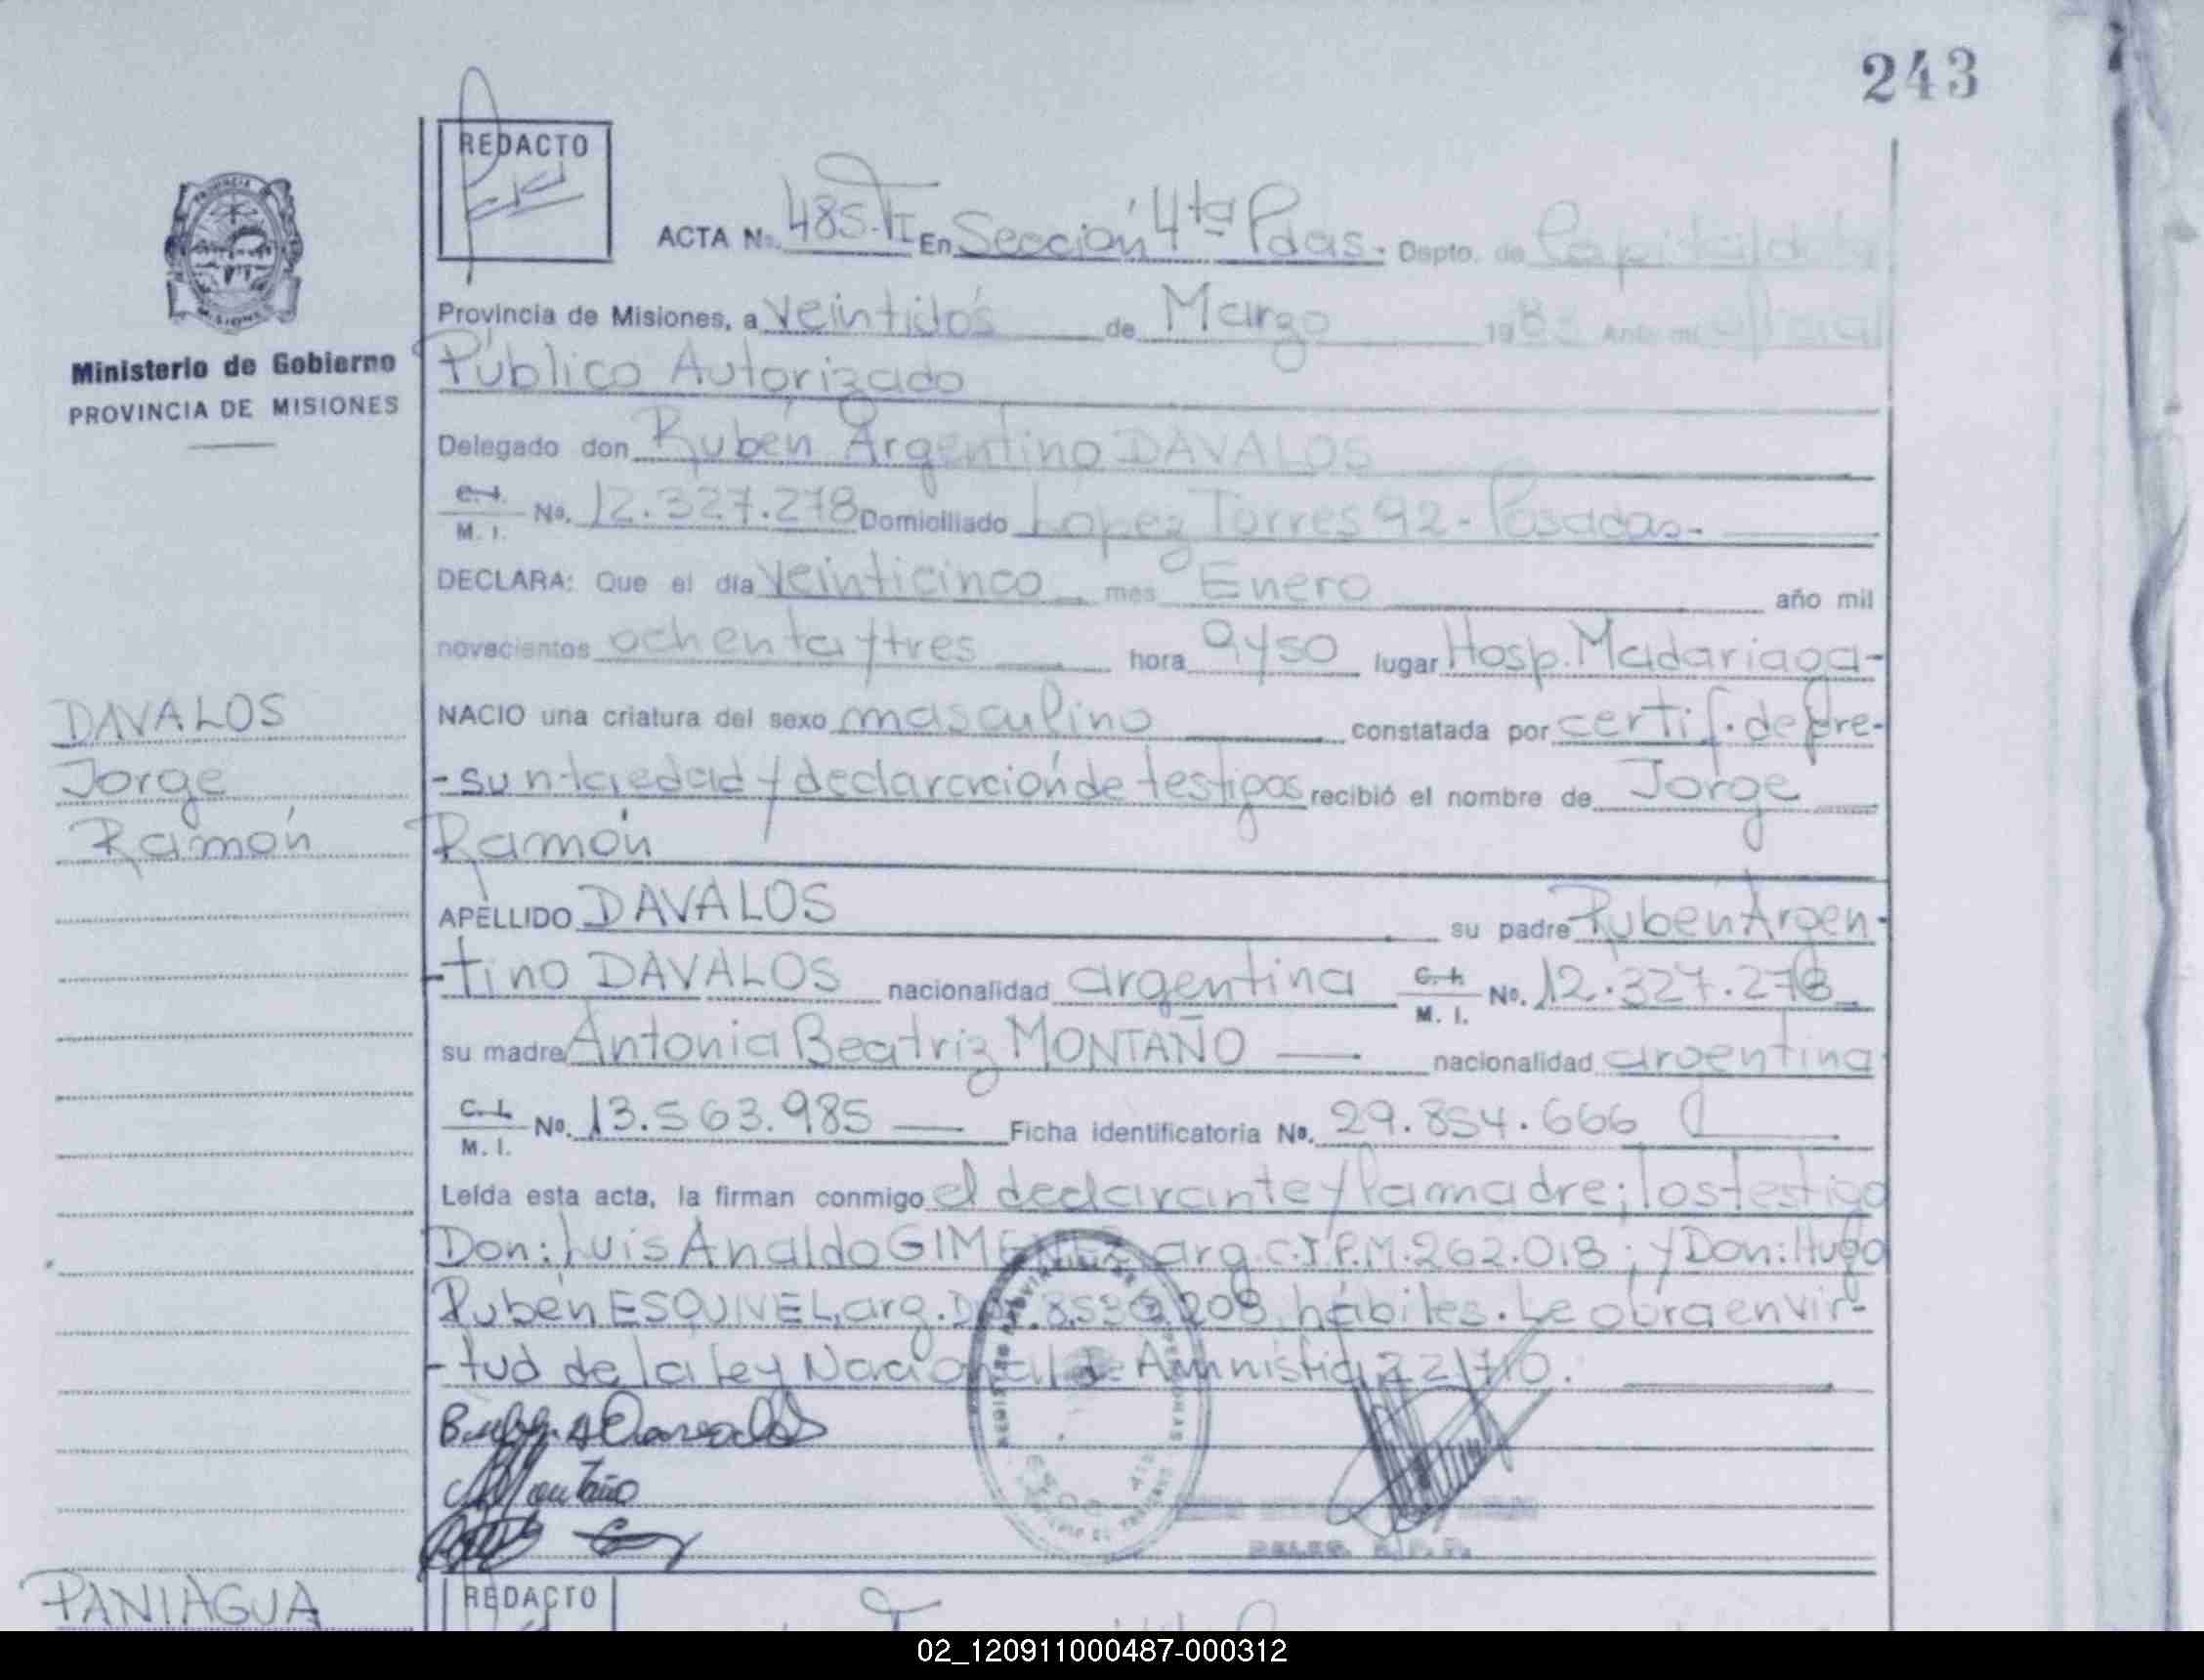 243
REDACTO
ACTA No. 485-TI En Sección 4ta Pdas. Dpto. de Capital de la
Provincia de Misiones, a Veintidós de Marzo 1983 Ante mi oficial
Ministerio de Gobierno
PROVINCIA DE MISIONES
Público Autorizado
Delegado don Rubén Argentino DAVALOS
C.I. M. I. No. 12.327.278 Domiciliado López Torres 92- Posadas-
DECLARA: Que el día veinticinco mes Enero año mil
novecientos ochenta y tres hora 9 y 50 lugar Hosp. Madariaga-
DAVALOS
Jorge
Ramón
NACIO una criatura del sexo masculino constatada por certif. de pre-
-sunta edad y declaración de testigos recibió el nombre de Jorge
Ramón
APELLIDO DAVALOS su padre Rubén Argen-
-tino DAVALOS nacionalidad argentina C.I. M. I. No. 12.327.278
su madre Antonia Beatriz MONTAÑO nacionalidad argentina
C.I. M. I. No. 13.563.985 Ficha identificatoria No. 29.854.666
Leída esta acta, la firman conmigo el declarante y la madre; los testigo
Don: Luis Analdo GIMENEZ arg. C.I.P.M. 262.018; y Don: Hugo
Rubén ESQUIVEL, arg. 8.530.208 hábiles. Le obra en vir-
-tud de la ley Nacional de Amnistia 22/710.
Montaño
DELEG. R. P. P.
PANIAGUA
REDACTO
02_120911000487-000312